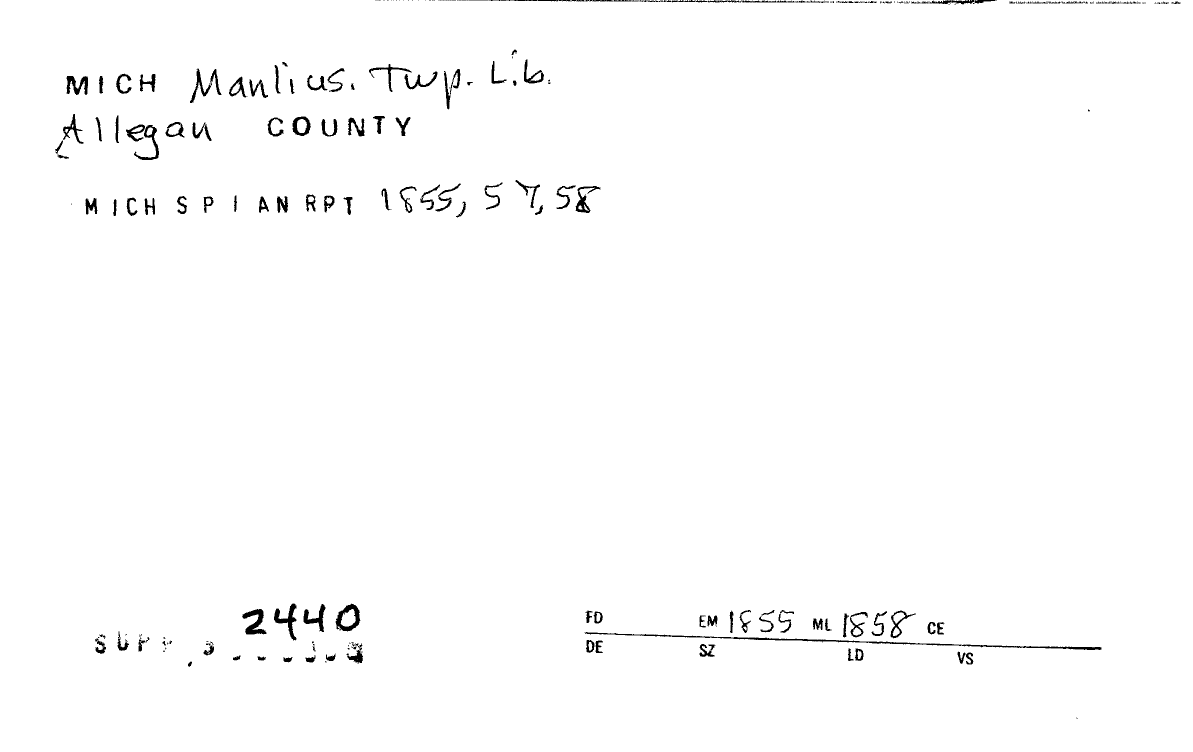 MICH Manlius. Twp. Lib.
Allegan COUNTY
MICH S P I AN RPT 1855, 57, 58
2440
SUPP
FD EM 1855 ML 1858 CE
DE SZ LD VS